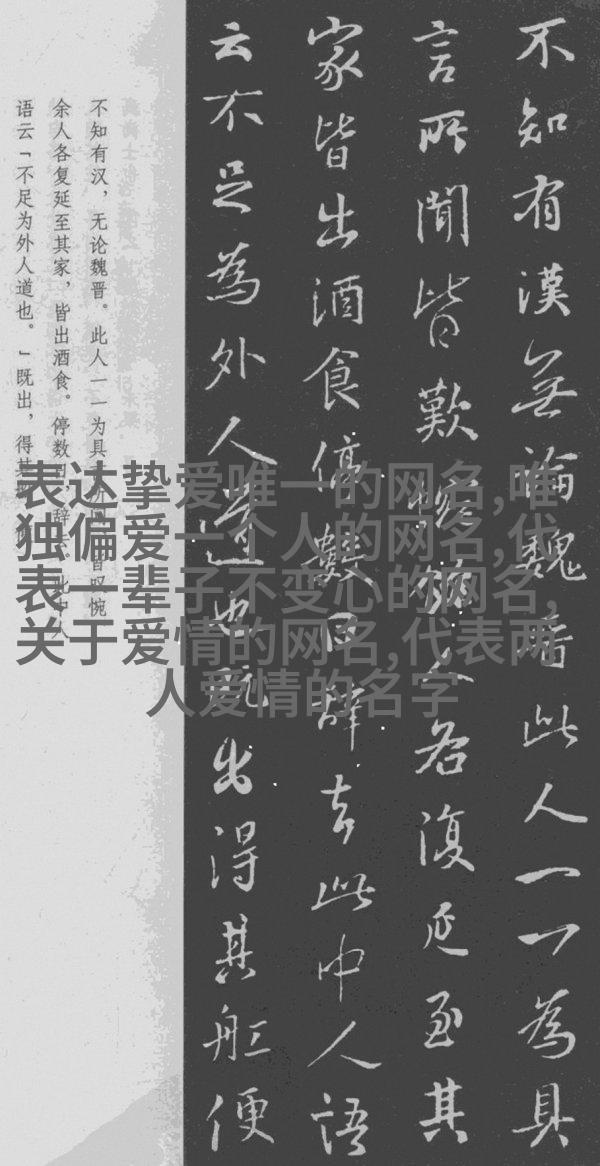 不知有漢無論魏晉此人一一為具
言所聞皆歎惋餘人各復延至其
家皆出酒食停數日辭去此中人語
云不足為外人道也既出得其船便
不知有汉，无论魏晋。此人一一为具言所闻，皆叹惋
余人各复延至其家，皆出酒食。停数日，辞去。此中人
语云「不足为外人道也。」既出，得其
表达挚爱唯一的网名,唯
独偏爱一个人的网名,代
表一辈子不变心的网名,
关于爱情的网名,代表两
人爱情的名字